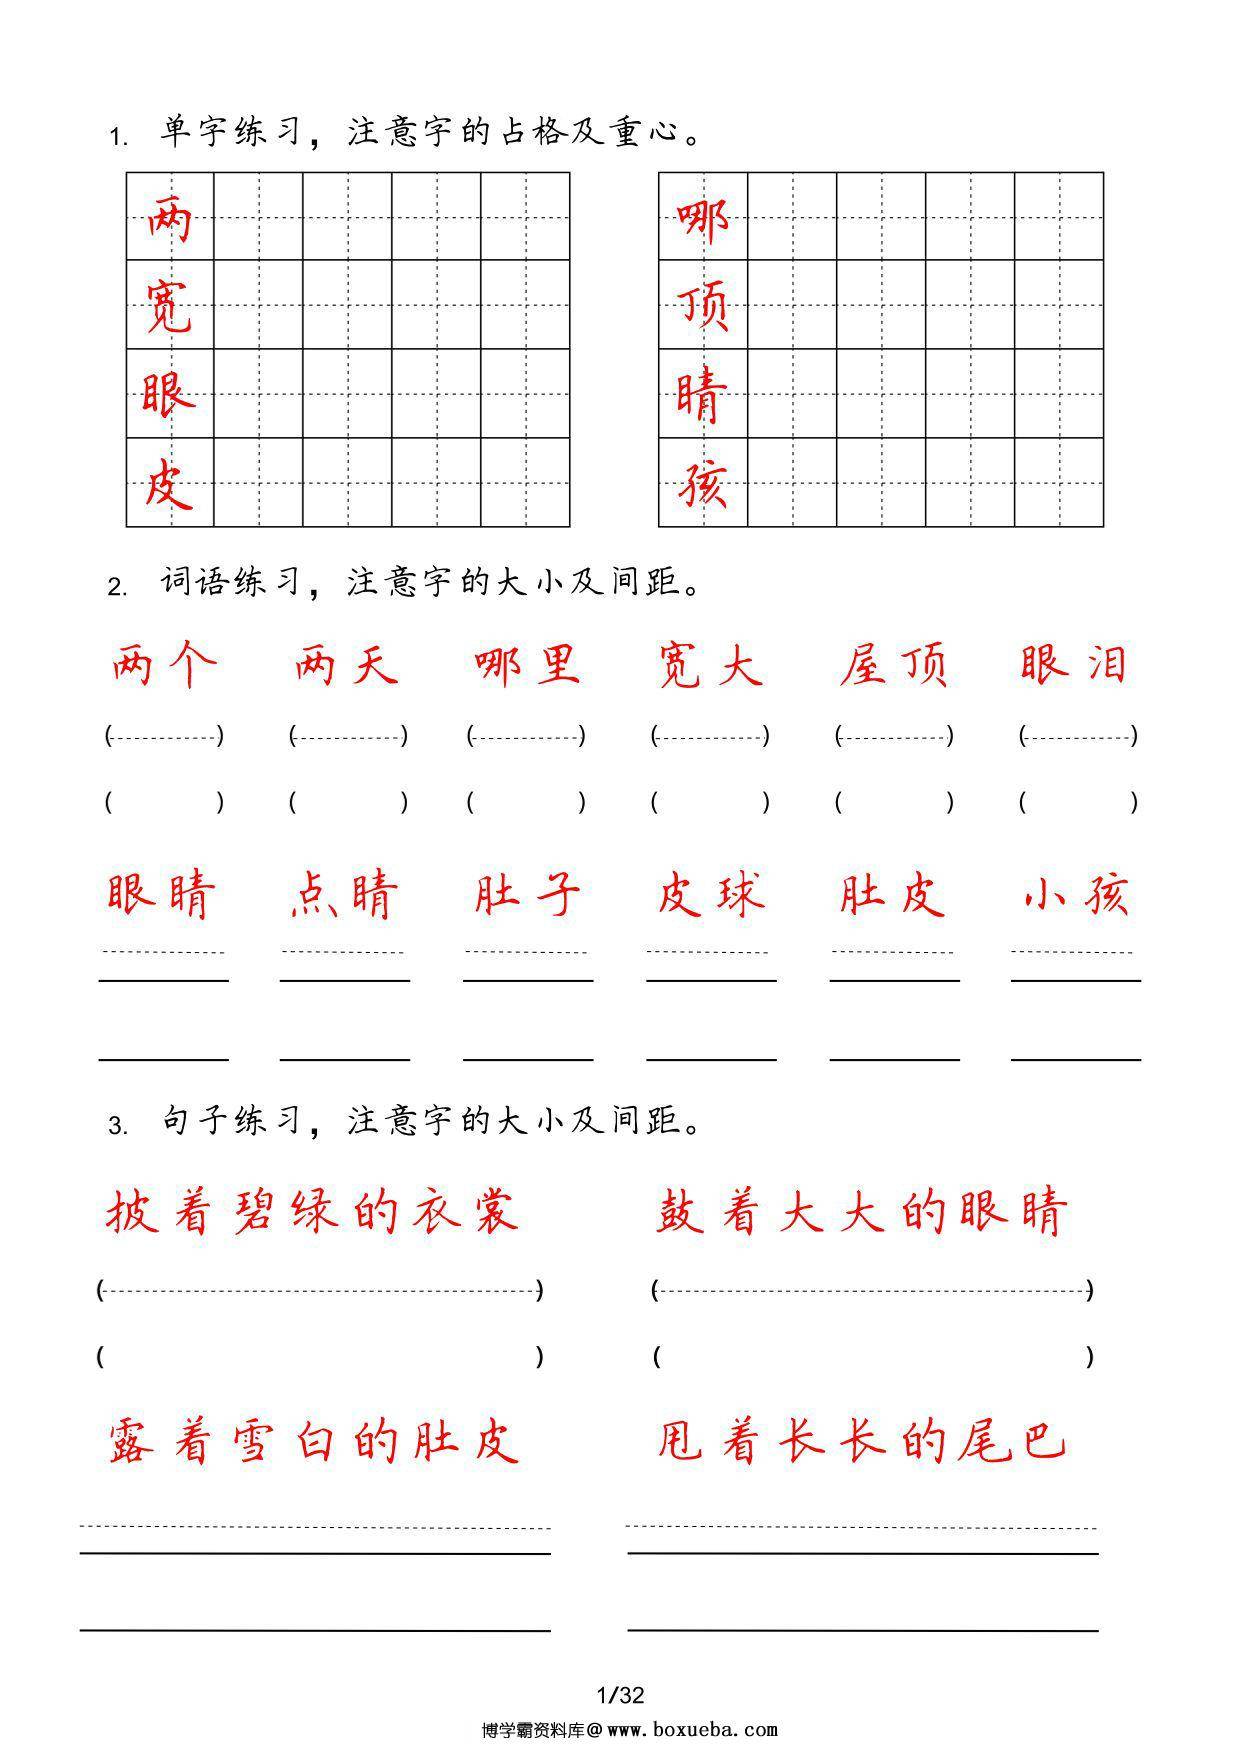 1. 单字练习，注意字的占格及重心。
两 哪
宽 顶
眼 睛
皮 孩
2. 词语练习，注意字的大小及间距。
两个 两天 哪里 宽大 屋顶 眼泪
( ) ( ) ( ) ( ) ( ) ( )
( ) ( ) ( ) ( ) ( ) ( )
眼睛 点睛 肚子 皮球 肚皮 小孩
3. 句子练习，注意字的大小及间距。
披着碧绿的衣裳 鼓着大大的眼睛
( ) ( )
( ) ( )
露着雪白的肚皮 甩着长长的尾巴
1/32
博学霸资料库@www.boxueba.com